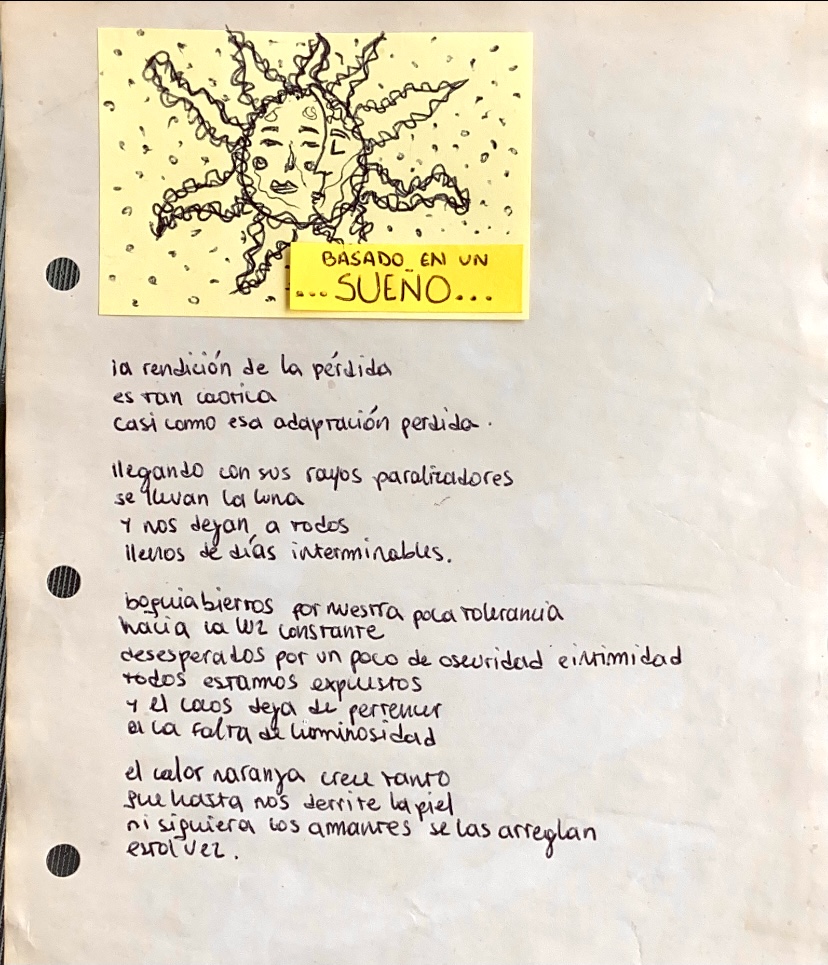 BASADO EN UN
...SUEÑO...
la rendición de la pérdida
es tan caotica
casi como esa adaptración perdida.
llegando con sus rayos paralizadores
se llevan la luna
y nos dejan a todos
llenos de días interminables.
boquiabiertos por nuestra poca tolerancia
hacia la luz constante
desesperados por un poco de oscuridad e intimidad
todos estamos expuestos
y el caos deja de pertenecer
a la falta de luminosidad
el calor naranja crece tanto
que hasta nos derrite la piel
ni siquiera los amantes se las arreglan
esta vez.